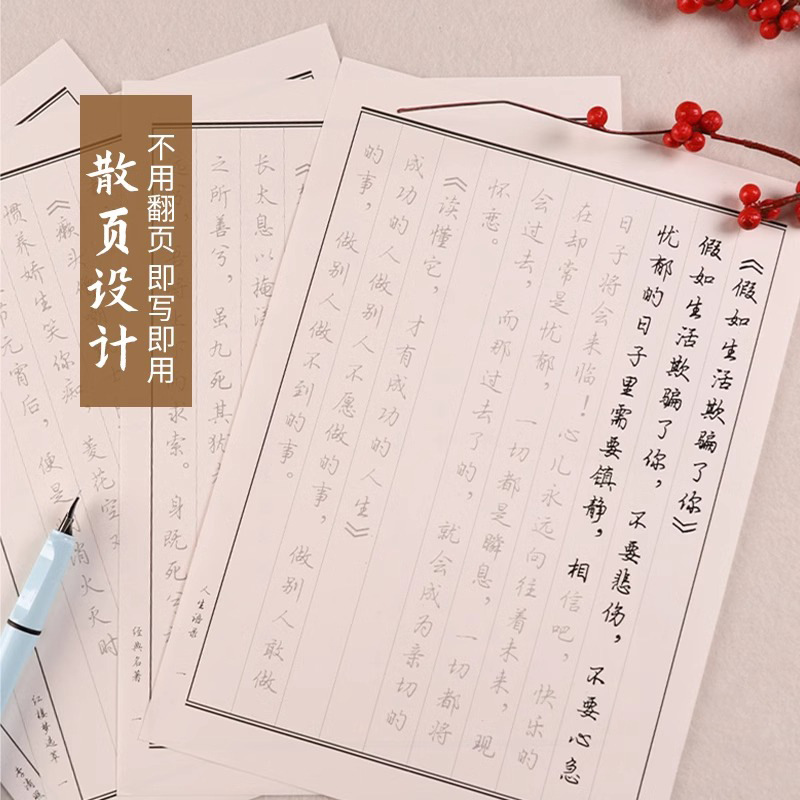 散页设计
不用翻页 即写即用
《假如生活欺骗了你》
假如生活欺骗了你，不要悲伤，不要心急
忧郁的日子里需要镇静，相信吧，快乐的
日子将会来临！心儿永远向往着未来，现
在却常是忧郁，一切都是瞬息，一切都将
会过去，而那过去了的，就会成为亲切的
怀恋。
《读懂它，才有成功的人生》
成功的人做别人不愿做的事，做别人敢做
的事，做别人做不到的事。
人生语录
长太息以掩
求索。身既死
之所善兮，虽九死其犹
经典名著 一
《癞头
惯养娇生笑你痴，菱花空
元宵后，便是 消火灭时
红楼梦选萃 一
李清